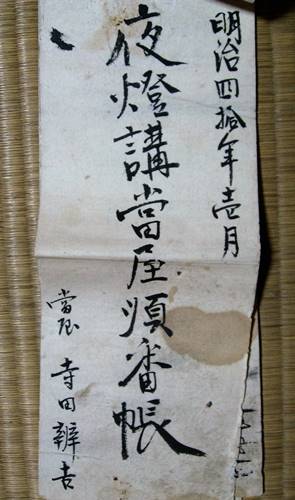 明治四拾年壱月
夜燈講當屋順番帳
當屋 寺田辨吉